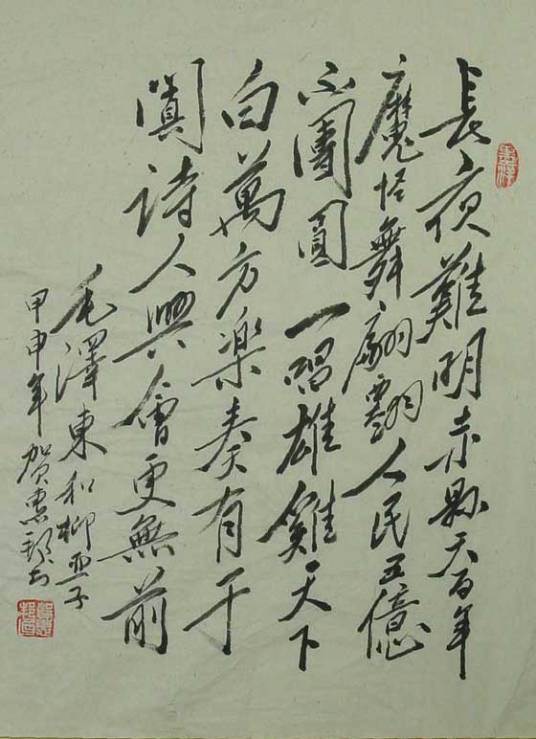 長夜難明赤縣天百年
魔怪舞翩翩人民五億
不團圓一唱雄雞天下
白萬方樂奏有于
闐詩人興會更無前
毛澤東和柳亞子
甲申年賀惠邦書